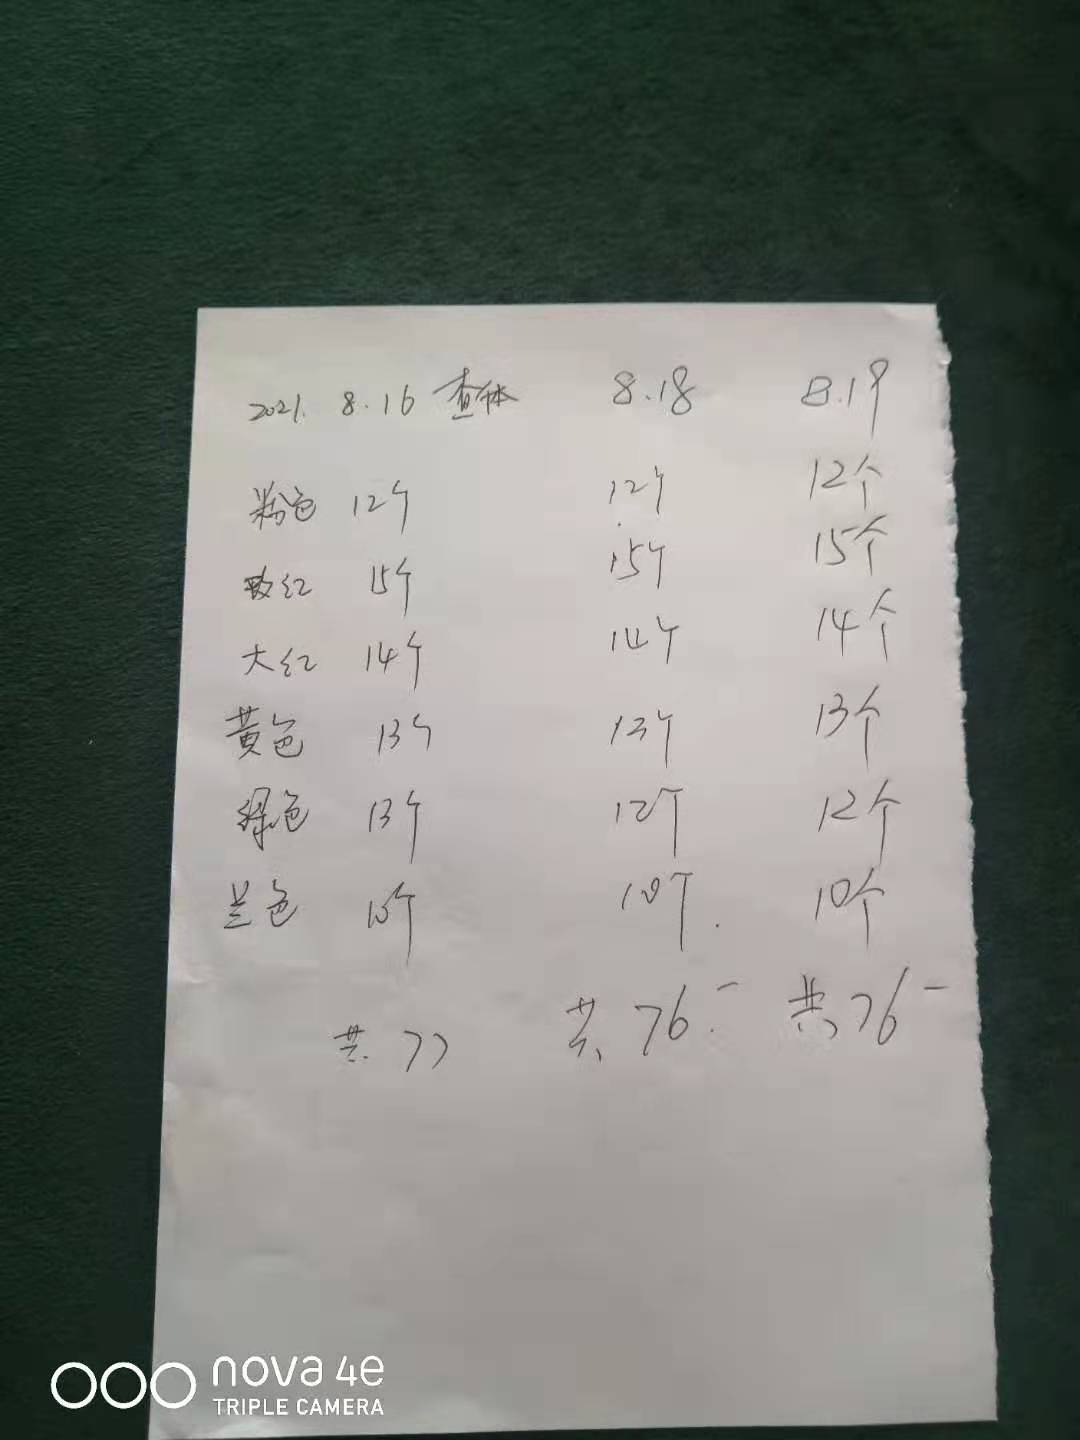 2021. 8.16 查体 8.18 8.19
粉色 12个 12个 12个
玫红 15个 15个 15个
大红 14个 14个 14个
黄色 13个 13个 13个
绿色 13个 12个 12个
兰色 10个 10个 10个
共77 共76 共76
nova 4e
TRIPLE CAMERA